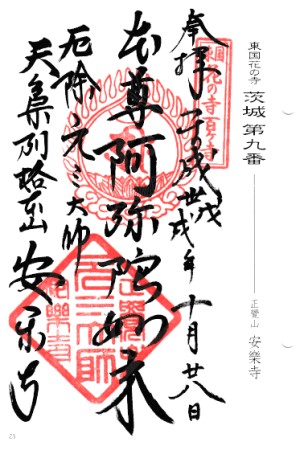 東国花の寺 茨城 第九番 正覺山 安樂寺
東国花の寺百ヶ寺
奉拝 平成卅戊戌年十月廿八日
本尊阿弥陀如来
厄除元三大師
天台宗別格本山 安楽寺
元三大師